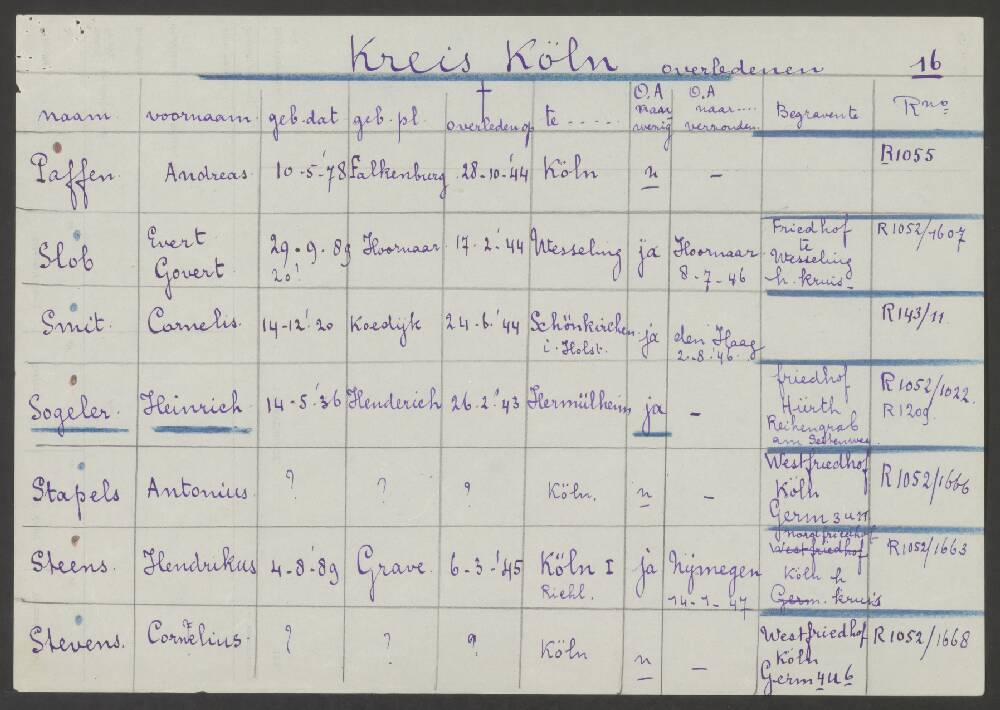 Kreis Köln overledenen 16
naam. voornaam. geb.dat geb.pl. † overleden op te ..... O.A naar wenig O.A naar.... verzonden. Begraven te Rno
Paffen. Andreas. 10-5-'78 Falkenburg 28-10-'44 Köln n - R1055
Slob Evert Govert 29-9-89 20! Hoornaar. 17-2-'44 Wesseling ja Hoornaar 8-7-46 Friedhof te Wesseling h. kruis- R1052/1607
Smit. Cornelis. 14-12-'20 Koedijk 24-6-'44 Schönkirchen i. Holst. ja den Haag 2-8-'46. R143/11
Sogeler. Heinrich 14-5-'36 Henderich 26-2-'43 Hermülheim ja - friedhof Hürth Reihengrab am R1052/1022. R1209.
Stapels Antonius. ? ? ? Köln. n - Westfriedhof Köln Germ 3 u 11 R1052/1666
Steens. Hendrikus 4-8-'89 Grave. 6-3-'45 Köln I Riehl. ja Nijmegen 14-1-47 Nordfriedhof Westfriedhof Köln h Germ. kruis R1052/1663
Stevens. Cornelius. ? ? ? Köln n - Westfriedhof Köln Germ 4 u 6 R1052/1668